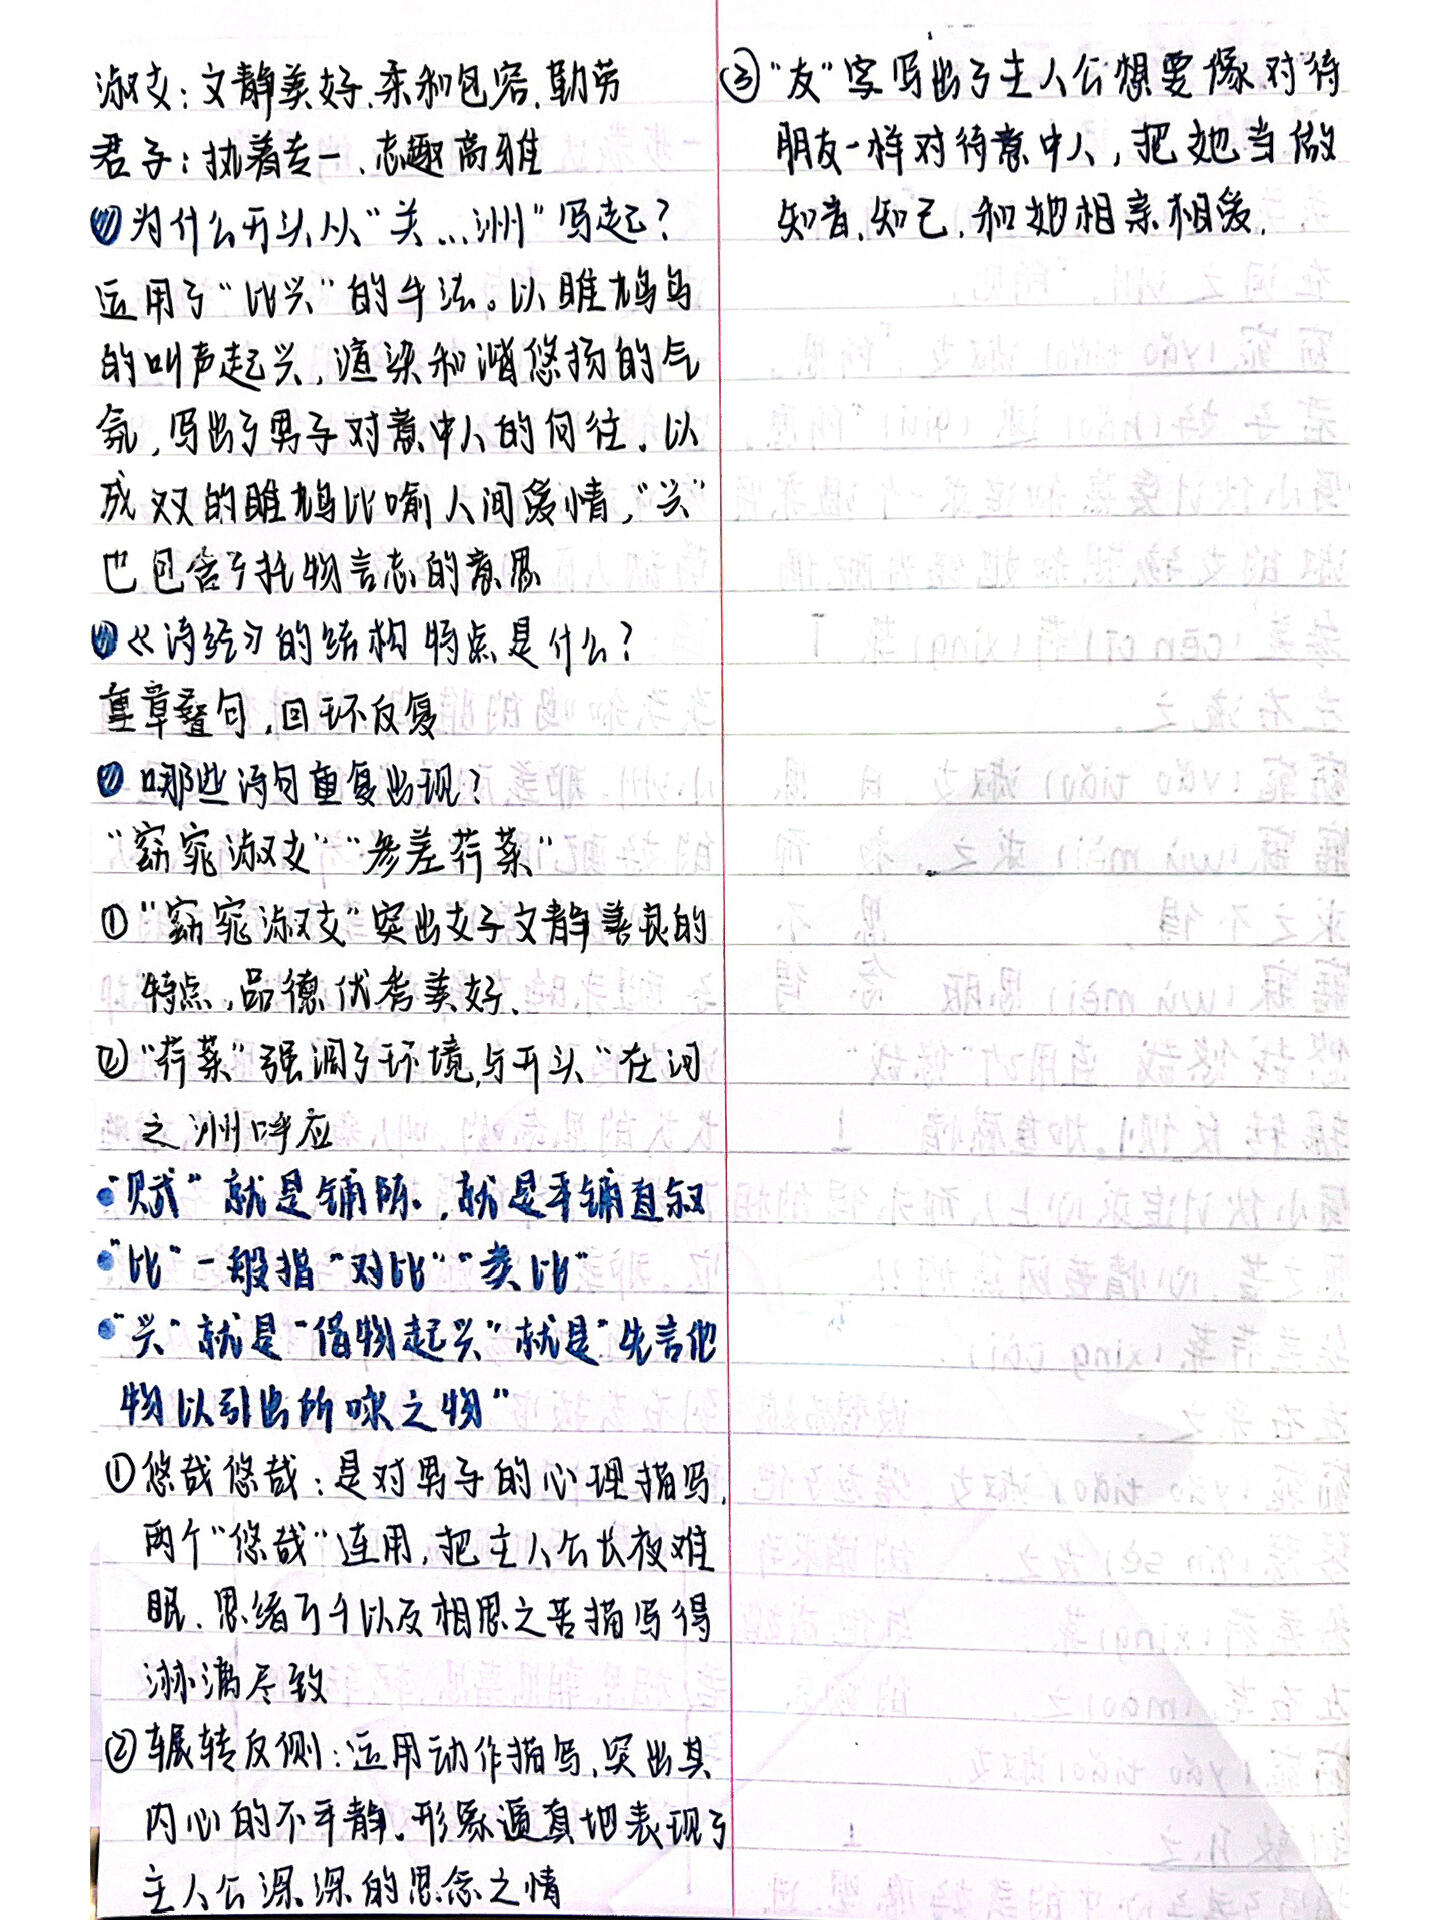 淑女：文静美好、柔和包容、勤劳
君子：执着专一、志趣高雅
为什么开头从“关…洲”写起？
运用了“比兴”的手法。以雎鸠鸟
的叫声起兴，渲染和谐悠扬的气
氛，写出了男子对意中人的向往。以
成双的雎鸠比喻人间爱情，“兴”
也包含了托物言志的意思
《诗经》的结构特点是什么？
重章叠句，回环反复
哪些诗句重复出现？
“窈窕淑女”“参差荇菜”
①“窈窕淑女”突出女子文静善良的
特点，品德优秀美好、
②“荇菜”强调了环境，与开头“在河
之洲呼应
“赋”就是铺陈。，就是平铺直叙
“比”一般指“对比”“类比”
“兴”就是“借物起兴”就是“先言他
物以引出所咏之物”
①悠哉悠哉：是对男子的心理描写，
两个“悠哉”连用，把主人公长夜难
眠、思绪万千以及相思之苦描写得
淋漓尽致
②辗转反侧：运用动作描写、突出其
内心的不平静。形象逼真地表现了
主人公深深的思念之情
③“友”字写出了主人公想要像对待
朋友一样对待意中人，把她当做
知音、知己，和她相亲相爱，